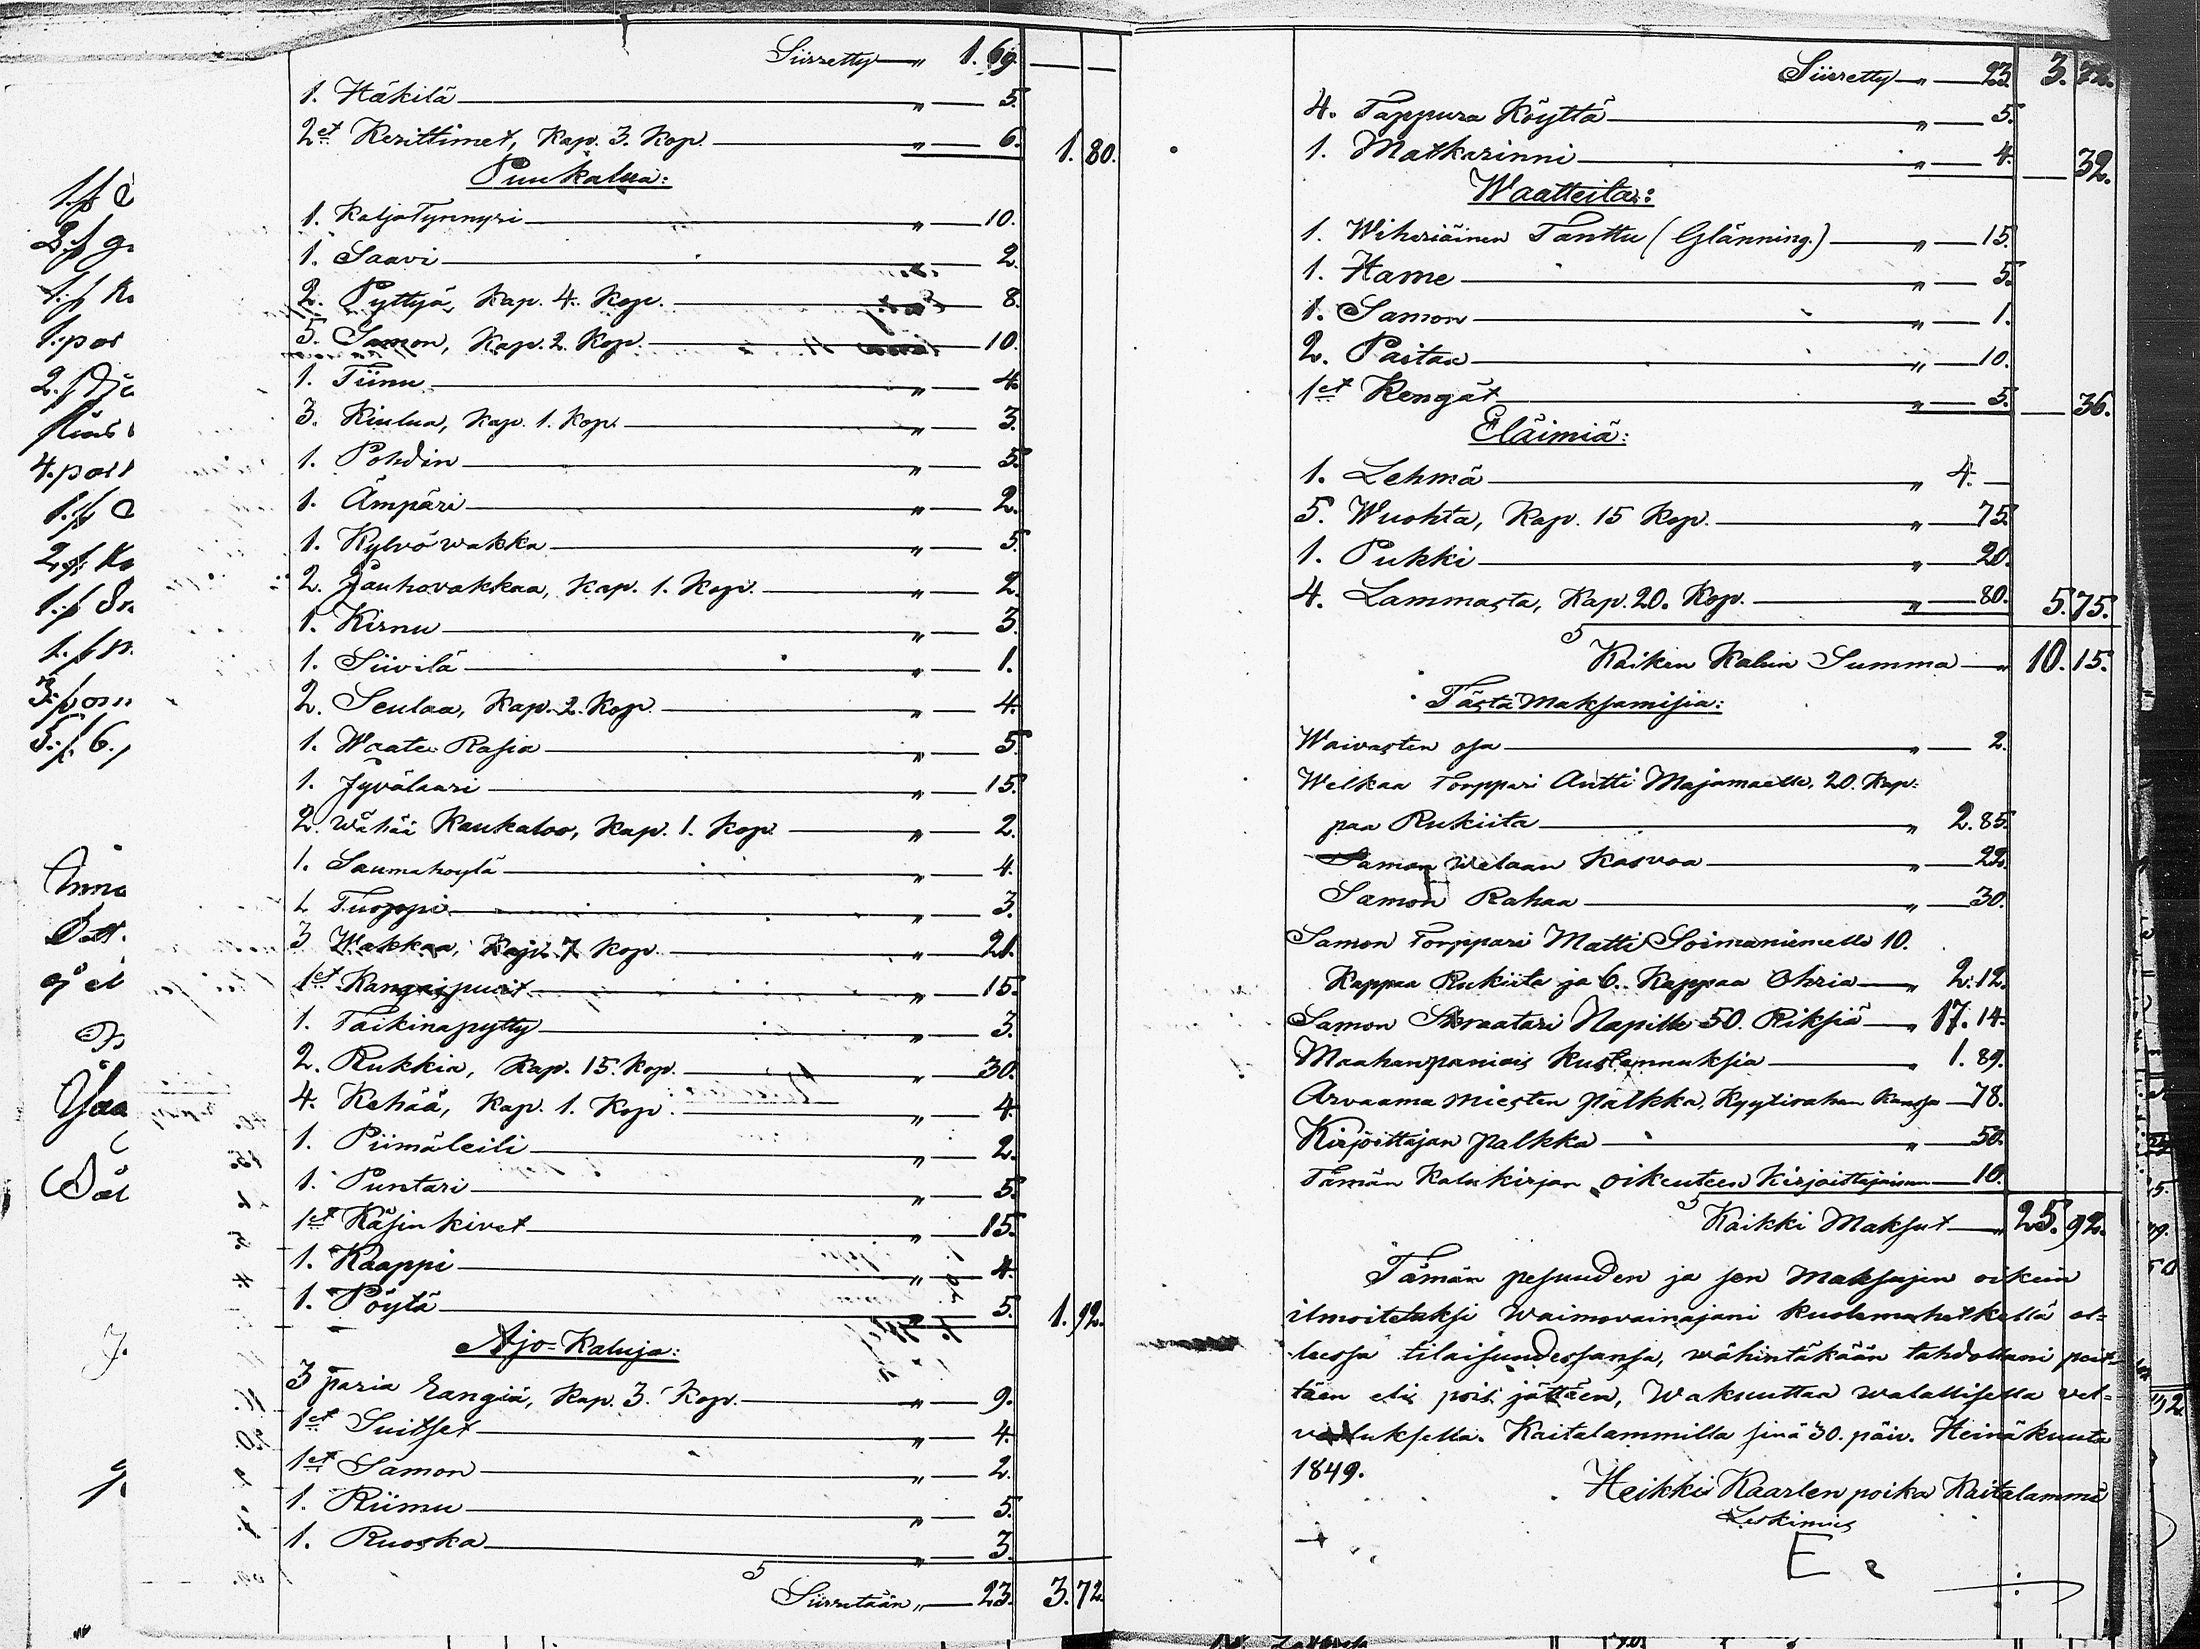 Siirretty — „ 1. 69. — —
1. Häkilä — „ — 5.
2et Kerittimet, Kap. 3. Kop. — „ — 6. 1. 80.
Puukalua:
1. Kaljatynnyri — „ — 10.
1. Saavi — „ — 2.
2. Pyttyä, Kap. 4. Kop. — 8.
5. Samon, Kap. 2. Kop. — 10.
1. Tiinu — „ — 4.
3. Kiulua, Kap. 1. Kop. — „ — 3.
1. Pohdin — „ — 5.
1. Ämpäri — „ — 2.
1. Kylvö wakka — „ — 5.
2. Jauhovakkaa, Kap. 1. Kop. — „ — 2.
1. Kirnu — „ — 3.
1. Siivilä — „ — 1.
2. Seulaa, Kap. 2. Kop. — „ — 4.
1. Waate Rasia — „ — 5.
1. Jyvälaari — „ — 15.
2. Wähää Kaukaloo, Kap. 1. Kop. — „ — 2.
1. Saumahöylä — „ — 4.
1. Tuoppi — „ — 3.
3 Wakkaa, Kap. 7 Kop. — „ — 21.
1et Kangaspuut — „ — 15.
1. Taikinapytty — „ — 3.
2. Rukkia, Kap. 15. Kop. — „ — 30.
4. Kehää, Kap. 1. Kop. — „ — 4
1. Piimäleili — „ — 2.
1. Puntari — „ — 5.
1et Käsin kivet — „ — 15.
1. Kaappi — „ — 4.
1. Pöytä — „ — 5. 1. 92.
Ajo-Kaluja:
3 paria Längiä, Kap. 3. Kop. — „ — 9.
1et Suitset — „ — 4.
1et Samon — „ — 2.
1. Riimu — „ — 5.
1. Ruoska — „ — 3.
Siirretään „ — 23. 3. 72.
Siirretty — „ — 23. 3. 72.
4. Tappura Köyttä — „ — 5.
1. Matkarinni — „ — 4. — 32.
Waatteita:
1. Wiheriäinen Tanttu (Glänning.) — „ — 15.
1. Hame — „ — 5.
1. Samon — „ — 1.
2. Paitaa — „ — 10.
1et Kengät — „ — 5. — 36.
Eläimiä:
1. Lehmä — „ 4. —
5. Wuohta, Kap. 15 Kop. — „ — 75.
1. Pukki — „ — 20.
4. Lammasta, Kap. 20. Kop. — „ — 80. 5. 75.
Kaiken Kalun Summa — „ 10. 15.
Tästä Maksamisia:
Waivasten osa — „ — 2.
Welkaa Torppari Antti Majamaelle, 20. Kap-
paa Rukiita — „ 2. 85.
Samon welaan Kasvoa — „ — 22.
Samon Rahaa — „ — 30.
Samon Torppari Matti Soimaniemelle 10.
Kappaa Rukiita ja 6. Kappaa Ohria — „ 2. 12.
Samon Napille 50. Riksiä — „ 17. 14.
Maahanpaniais Kustannuksia — „ 1. 89.
Arvaama miesten palkka, Kyytirahan Kanssa — 78.
Kirjoittajan palkka — „ — 50.
Tämän Kalukirjan oikeuteen Kirjoittajaisen — 10.
Kaikki Maksut — „ 25. 92.
Tämän pesuuden ja sen Maksujen oikein
ilmoitetuksi Waimovainajani kuolemahetkellä ol-
leessa tilaisuudessansa, wähintäkään tahdottani peit-
täen eli pois jättäen, Wakuuttaa walallisella vel-
vollisuksella. Kaitalammilla sinä 30. päiv. Heinäkuuta
1849.
Heikki Kaarlen poika Kaitalammi
Leskimies